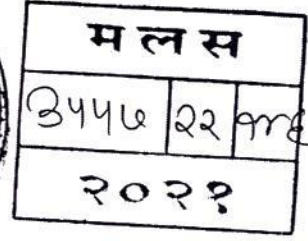 म ल स
३५५७ २२
२०२१